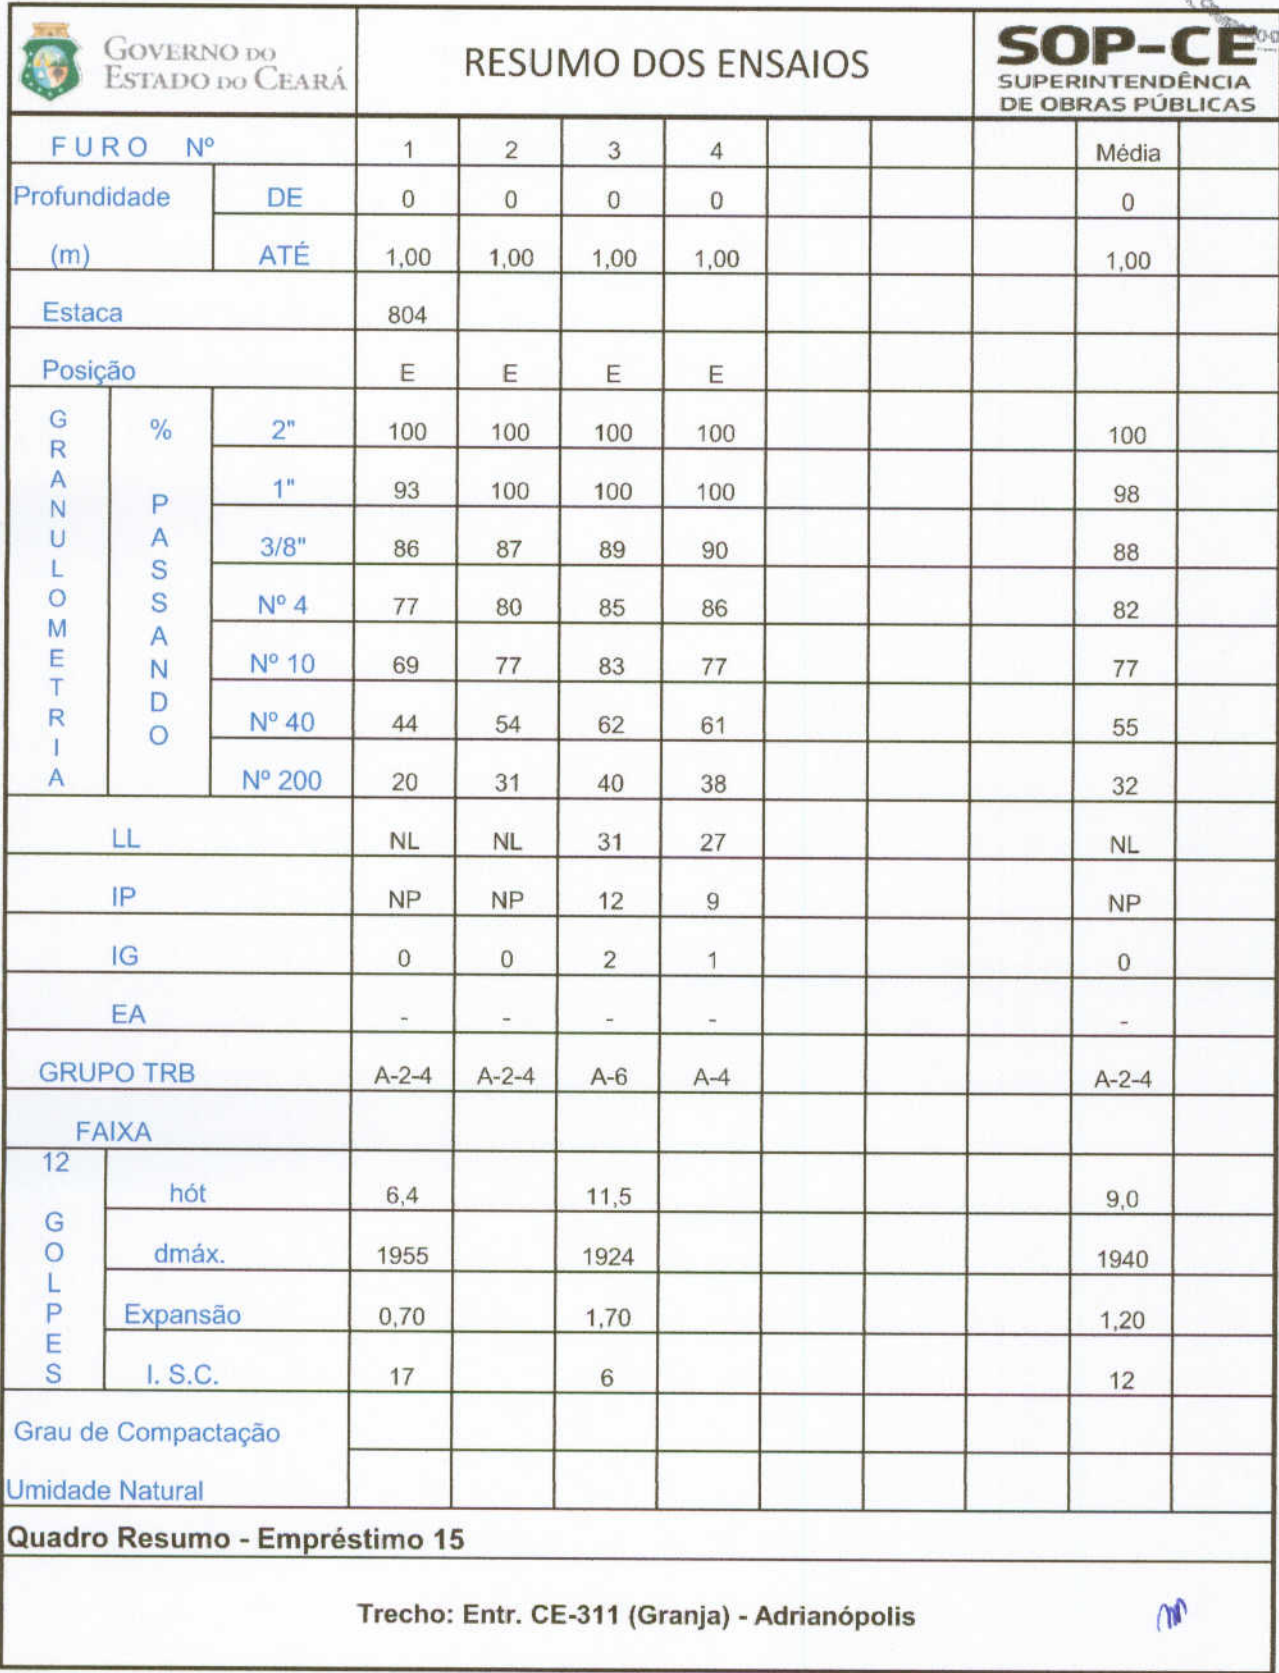 GOVERNO DO
ESTADO DO CEARÁ
RESUMO DOS ENSAIOS
SOP-CE
SUPERINTENDÊNCIA
DE OBRAS PÚBLICAS
FURO Nº 1 2 3 4 Média
Profundidade DE 0 0 0 0 0
(m) ATÉ 1,00 1,00 1,00 1,00 1,00
Estaca 804
Posição E E E E
GRANULOMETRIA % PASSANDO
2" 100 100 100 100 100
1" 93 100 100 100 98
3/8" 86 87 89 90 88
Nº 4 77 80 85 86 82
Nº 10 69 77 83 77 77
Nº 40 44 54 62 61 55
Nº 200 20 31 40 38 32
LL NL NL 31 27 NL
IP NP NP 12 9 NP
IG 0 0 2 1 0
EA - - - - -
GRUPO TRB A-2-4 A-2-4 A-6 A-4 A-2-4
FAIXA
12 GOLPES
hót 6,4 11,5 9,0
dmáx. 1955 1924 1940
Expansão 0,70 1,70 1,20
I. S.C. 17 6 12
Grau de Compactação
Umidade Natural
Quadro Resumo - Empréstimo 15
Trecho: Entr. CE-311 (Granja) - Adrianópolis